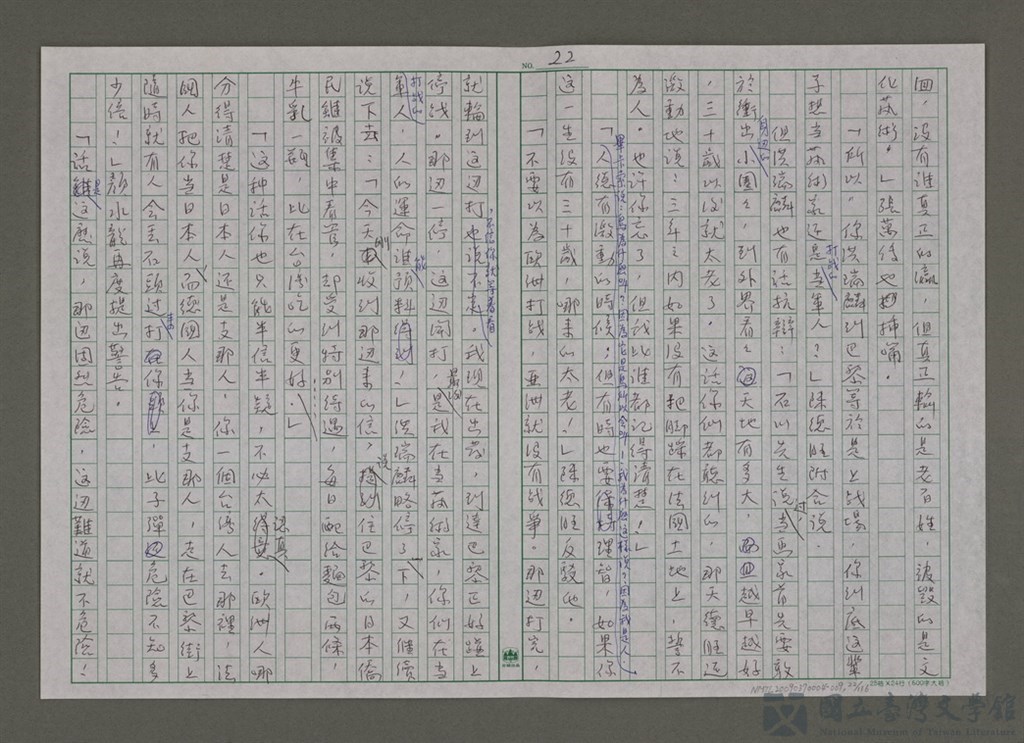 NO. 22
回，沒有誰真正的贏，但真正輸的是老百姓，被毀的是文
化藝術。」張萬傳也插嘴。
「所以，你洪瑞麟到巴黎等於是上戰場，你到底這輩
子想當藝術家還是當打戰的軍人？」陳德旺附合說。
但洪瑞麟也有話抗辯：「石川先生說過畫家首先要敢
於衝出身邊的小圈圈，到外界看看天地有多大，越早越好
，三十歲以後就太老了。這話你們都聽到的，那天德旺还
激動地說：三年之內如果沒有把脚踩在法國土地上，誓不
為人。也許你忘了，但我比誰都記得清楚！」
「人總有激動的時候；但有時也要保持理智，如果你
這一生沒有三十歲，哪來的太老！」陳德旺反駁他。
「不要以為歐洲打战，亞洲就沒有战爭。那边打完，
就輪到这边打也說不定，我現在出發，到達巴黎正好趕上
停战。那边一停，这边開打，是我在当藝術家，你們在当
打战的軍人，人的運命誰能預料！」洪瑞麟略停了一下，又繼續
说下去：「今天剛收到那边来的信，说住巴黎的日本僑
民雖被集中看管，却受到特別待遇，每日配給麵包兩條，
牛乳一瓶，比在台湾吃的更好。」
「这种話你也只能半信半疑，不必太認真。歐洲人哪
分得清楚是日本人还是支那人，你一個台湾人去那裡，法
國人把你当日本人，而德國人当你是支那人，走在巴黎街上
隨時就有人会丟石頭过來打你，比子彈危險不知多
少倍！」顏水龍再度提出警告。
「話是这麽说，那边固然危險，这边難道就不危險！
25格×24行（600字大稿）
國立臺灣文學館
National Museum of Taiwan Literature